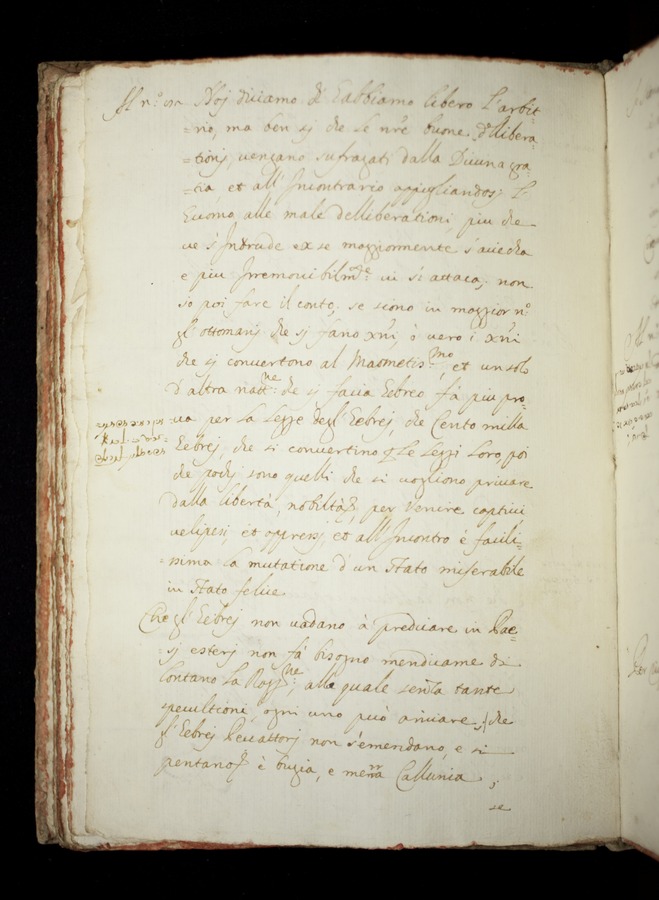 Al n.° 172 Noj diciamo ch' Eabbiamo libero l'arbit=
=rio, ma ben sj che le nr̃e buone delibera=
=tionj, vengano sufragati dalla Diuina gra=
=tia et all' Incontrario appigliandosj l'
Euomo alle male delliberationi, piu che
ue s' Intrude ex se maggiormente s'auecha
e piu Irremouibilm.te ui si attaca; non
so poi fare il conto, se siono in maggior n.°
gl' ottomanj che sj fano xñi, ò vero i xñi
che sj convertono al Maometis.mo, et un solo
d'altra nat.ne che sj facia Eebreo fà piu pro=
=ua per la legge degl' Eebrej, che Cento milla
Eebrej, che si convertino le leggi loro, poi
che pochj sono quelli che si vogliono priuare
dalla libertà, nobiltà, per venire captiui
uelipesi, et oppressj, et all' Incontro è facili=
=ssima la mutatione d'un stato miserabile
in stato felice
Che gl' Eebrej non vadano à predicare in Pae=
=sj esterj non fà bisogno mendicarne di
lontano la Rag.ne, alla quale senza tante
specultioni, ogni uno può ariuare, che
gl' Eebrej Peccattorj non s'emendano, e si
pentano è bugia, e mera Callunia;
se